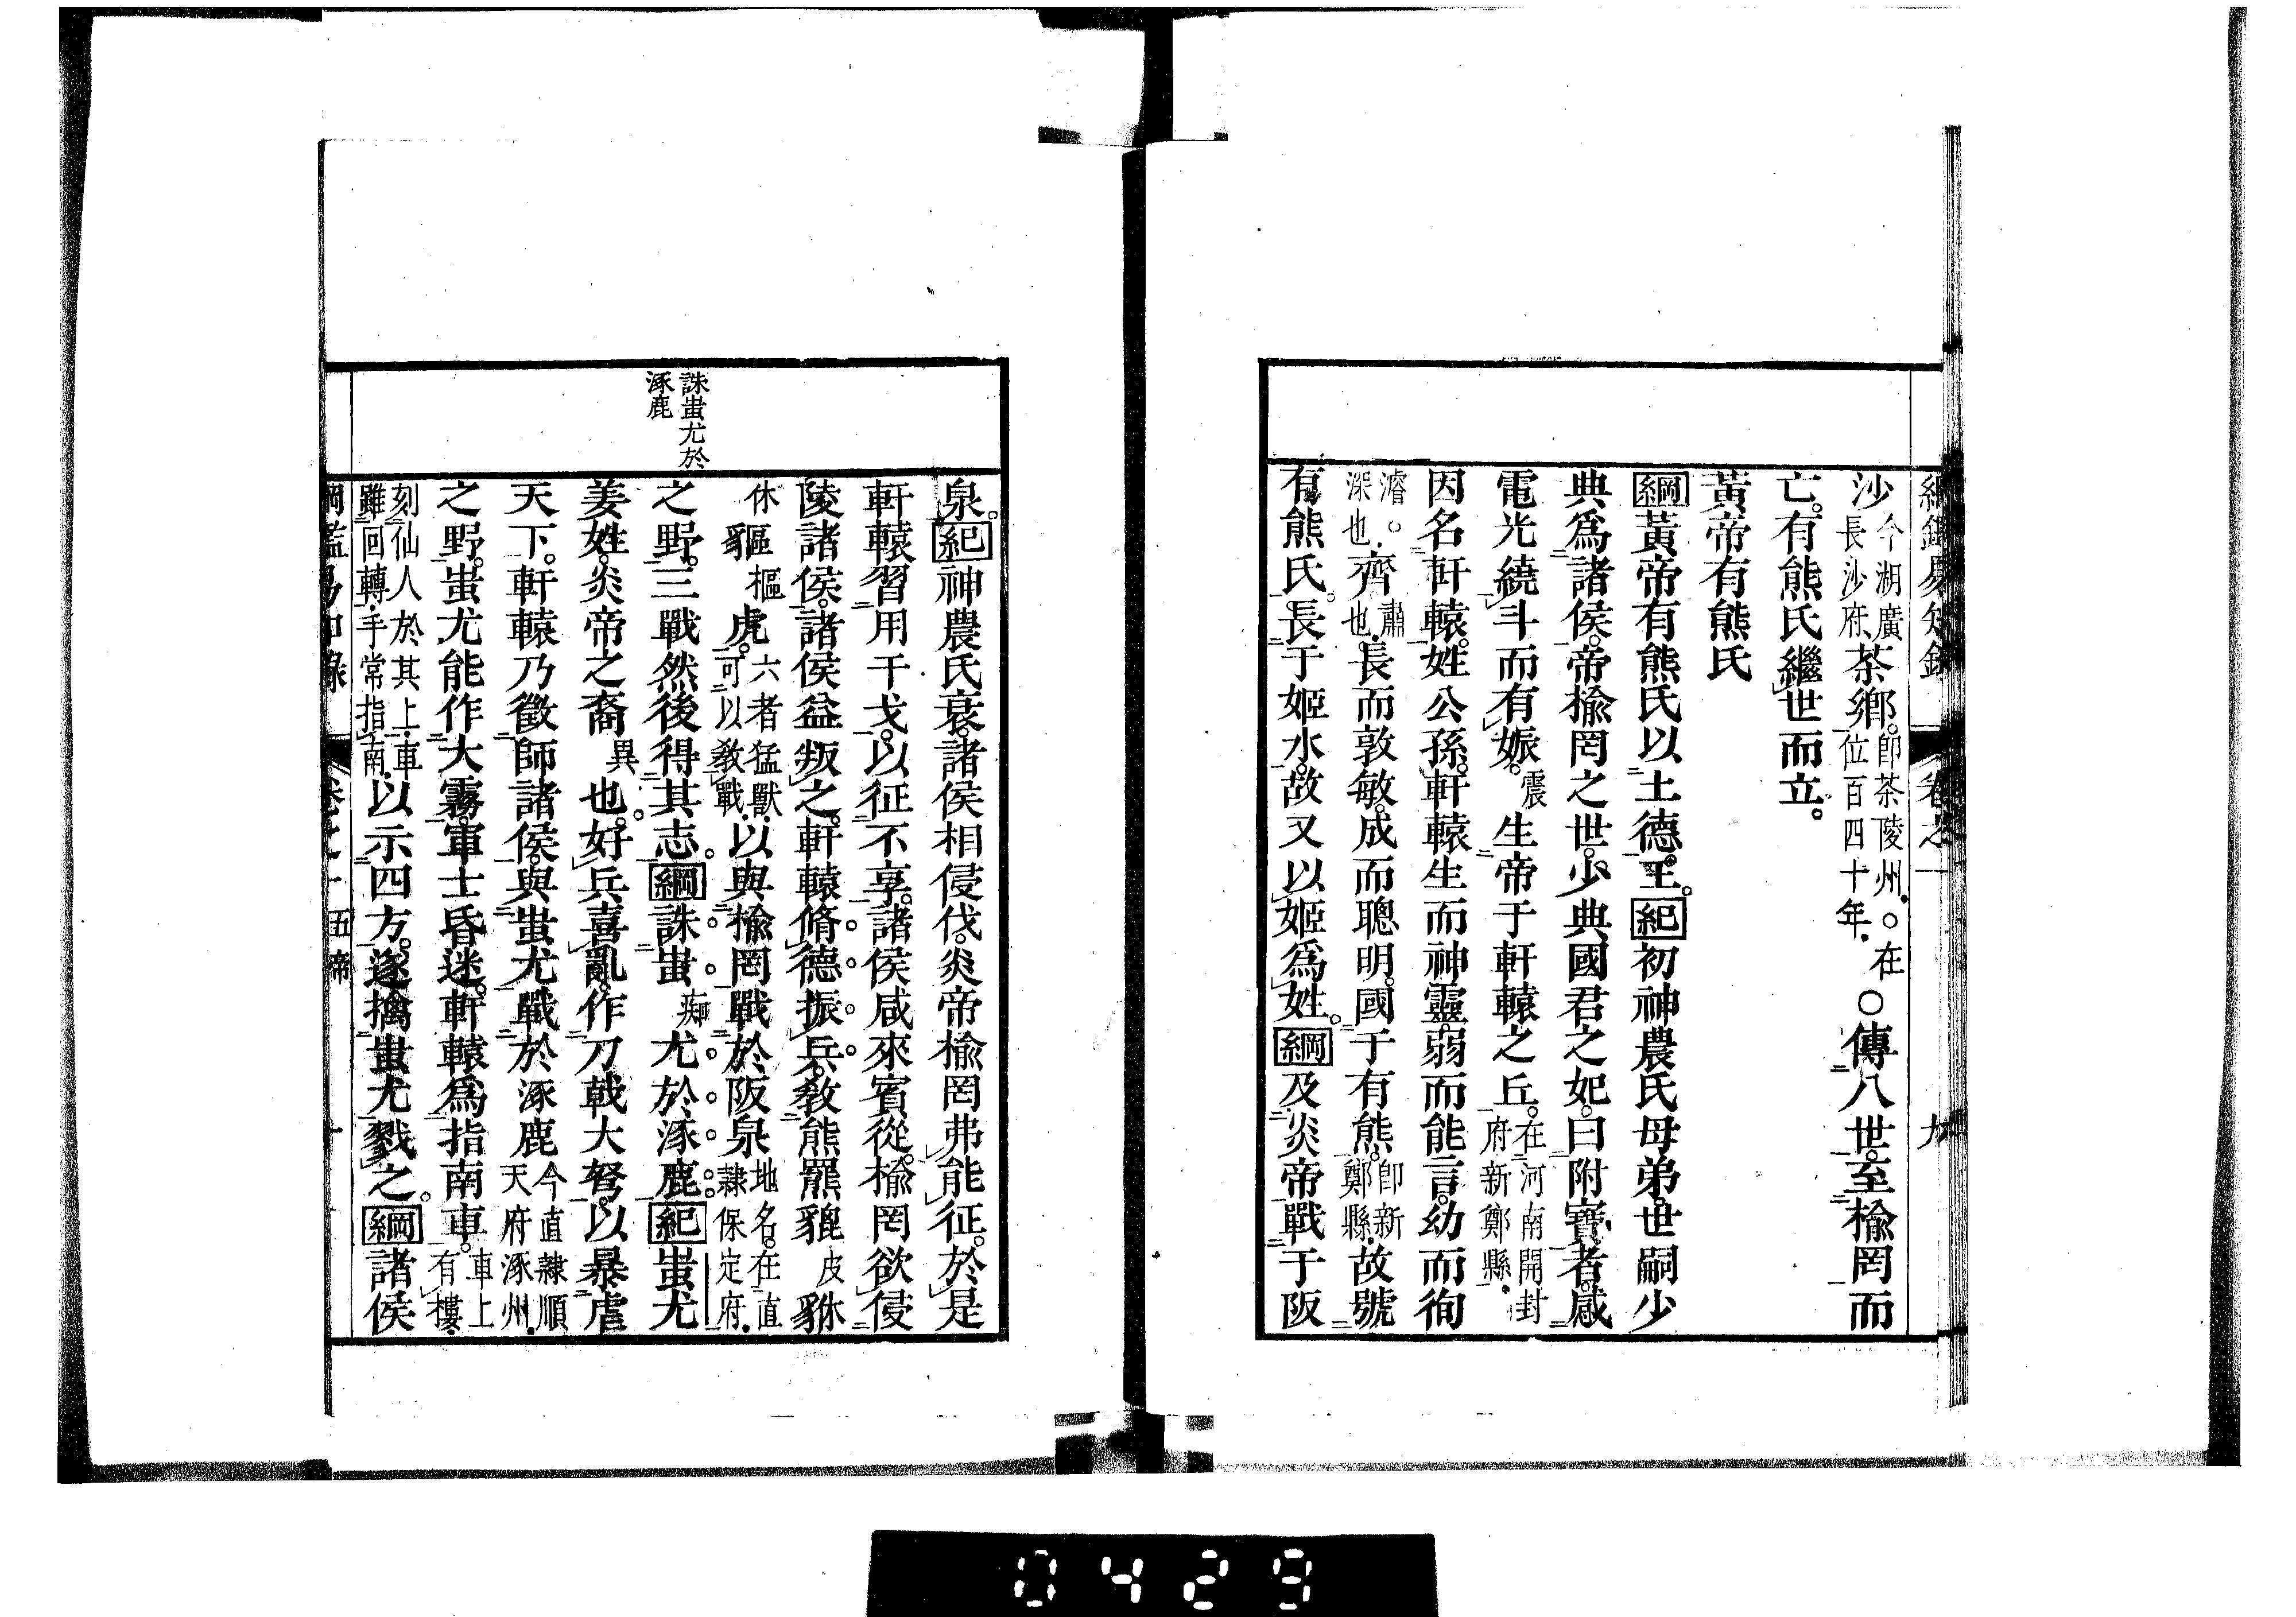 綱鑑易知錄　卷之一　九
沙今湖廣長沙府茶鄉。卽茶陵州。○在位百四十年。○傳八世。至榆罔而
亡。有熊氏繼世而立。
黃帝有熊氏
綱黃帝有熊氏以土德王。紀初神農氏母弟。世嗣少
典爲諸侯。帝榆罔之世。少典國君之妃。曰附寶者。感
電光繞斗而有娠。震生帝于軒轅之丘。在河南開封府新鄭縣。
因名軒轅。姓公孫。軒轅生而神靈。弱而能言。幼而徇
濬。○深也。齊肅也。長而敦敏。成而聰明。國于有熊。卽新鄭縣。故號
有熊氏。長于姬水。故又以姬爲姓。綱及炎帝戰于阪
泉。紀神農氏衰。諸侯相侵伐。炎帝榆罔弗能征。於是
軒轅習用干戈。以征不享。諸侯咸來賓從。榆罔欲侵
陵諸侯。諸侯益叛之。軒轅脩德振兵。敎熊羆貔皮貅
休貙樞虎。六者猛獸。可以敎戰。以與榆罔戰於阪泉地名。在直隸保定府。
誅蚩尤於
涿鹿
之野。三戰然後得其志。綱誅蚩痴尤於涿鹿。紀蚩尤
姜姓。炎帝之裔異也。好兵喜亂。作刀戟大弩。以暴虐
天下。軒轅乃徵師諸侯。與蚩尤戰於涿鹿今直隸順天府涿州。
之野。蚩尤能作大霧。軍士昏迷。軒轅爲指南車。車上有樓。
刻仙人於其上。車雖回轉。手常指南。以示四方。遂擒蚩尤戮之。綱諸侯
綱鑑易知錄　卷之一　五帝　十
0429